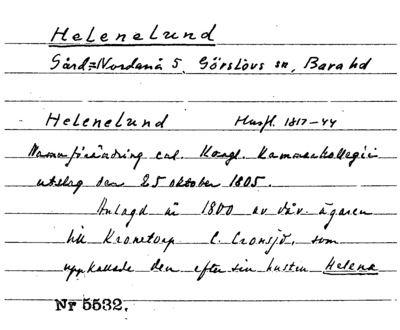 Helenelund
Gård=Nordanå 5, Görslövs sn, Bara hd
Helenelund Husfl. 1817-44
Namnförändring enl. Kongl. Kammarkollegii
utslag den 25 oktober 1805.
Anlagd år 1800 av dåv. ägaren
till Kronetorp C. Cronsjö, som
uppkallade den efter sin hustru Helena
Nr 5532.